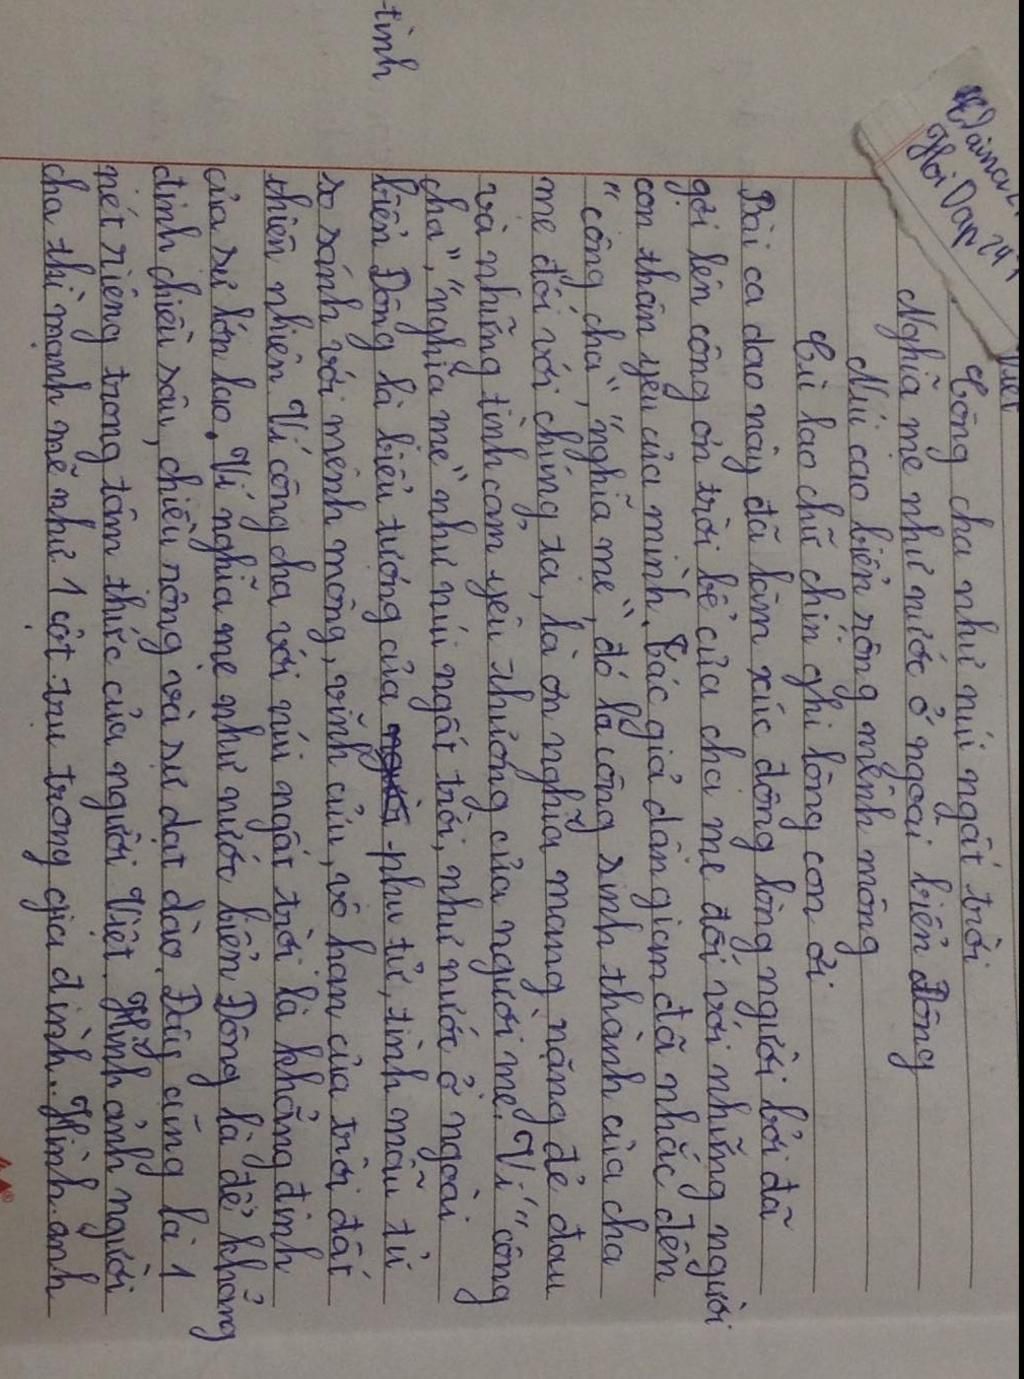 Hoi Dap 247
Công cha như núi ngất trời
Nghĩa mẹ như nước ở ngoài biển Đông
Núi cao biển rộng mênh mông
Cù lao chữ chín ghi lòng con ơi
Bài ca dao này đã làm xúc động lòng người bởi đã
gợi lên công ơn trời bể của cha mẹ đối với những người
con thân yêu của mình. Tác giả dân gian đã nhắc đến
"công cha", "nghĩa mẹ", đó là công sinh thành của cha
mẹ đối với chúng ta, là ơn nghĩa mang nặng đẻ đau
và những tình cảm yêu thương của người mẹ. Ví "công
cha", "nghĩa mẹ" như núi ngất trời, như nước ở ngoài
biển Đông là biểu tượng của phụ tử, tình mẫu tử
tình
so sánh với mênh mông, vĩnh cửu, vô hạn của trời đất
thiên nhiên. Ví công cha với núi ngất trời là khẳng định
của sự lớn lao. Ví nghĩa mẹ như nước biển Đông là để khẳng
định chiều sâu, chiều rộng và sự dạt dào. Đây cũng là 1
nét riêng trong tâm thức của người Việt. Hình ảnh người
cha thì mạnh mẽ như 1 cột trụ trong gia đình. Hình ảnh